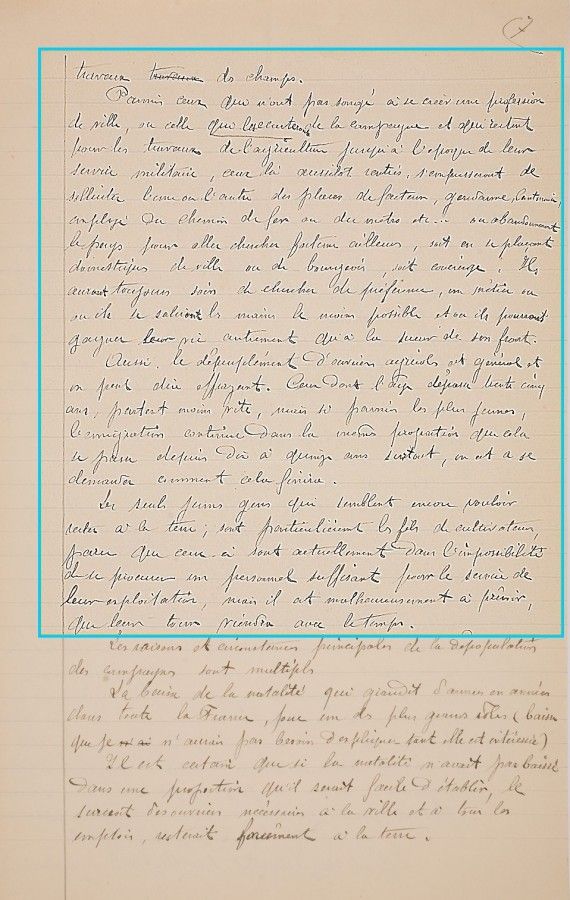 7
travaux travaux des champs.
Parmis ceux qui n'ont pas songé à se créer une profession
de ville, ou celle qui de la campagne et qui restent
pour les travaux de l'agriculture jusqu'à l'époque de leur
service militaire, ceux là aussitôt rentrés, s'empresseront de
solliciter l'une ou l'autre des places de facteur, gendarme, cantonnier,
employé du chemin de fer ou du métro etc... ou abandonneront
le pays pour aller chercher fortune ailleurs, soit en se plaçant
domestiques de ville ou de bourgeois, soit concierge. Ils
auront toujours soin de chercher de préférence, un métier ou
ou ils se saliront les mains le moins possible et ou ils pourront
gagner leur vie autrement qu'à la sueur de son front.
Aussi, le dépeuplement d'ouvriers agricols est général et
on peut dire effrayant. Ceux dont l'âge dépasse trente cinq
ans, partent moins vite, mais si parmis les plus jeunes,
l'émigration continue dans la même proportion que cela
se passe depuis dix à quinze ans surtout, on est a se
demander comment cela finira.
Les seuls jeunes gens qui semblent encore vouloir
rester à la terre, sont particulièrement les fils de cultivateurs,
parce que ceux-ci sont actuellement dans l'impossibilité
de se procurer un personnel suffisant pour le service de
leur exploitation, mais il est malheureusement à prévoir,
que leur tour viendra avec le temps.
Les raisons et circonstances principales de la dépopulation
des campagnes sont multiples.
La baisse de la natalité qui grandit d'années en années
dans toute la France, joue un des plus grands rôles (baisse
que je n'aurais pas besoin d'expliquer tant elle est )
Il est certain que si la natalité n'avait pas baissé
dans une proportion qu'il serait facile d'établir, le
surcroit des ouvriers nécessaires à la ville et à tous les
emplois, resterait forcément à la terre.